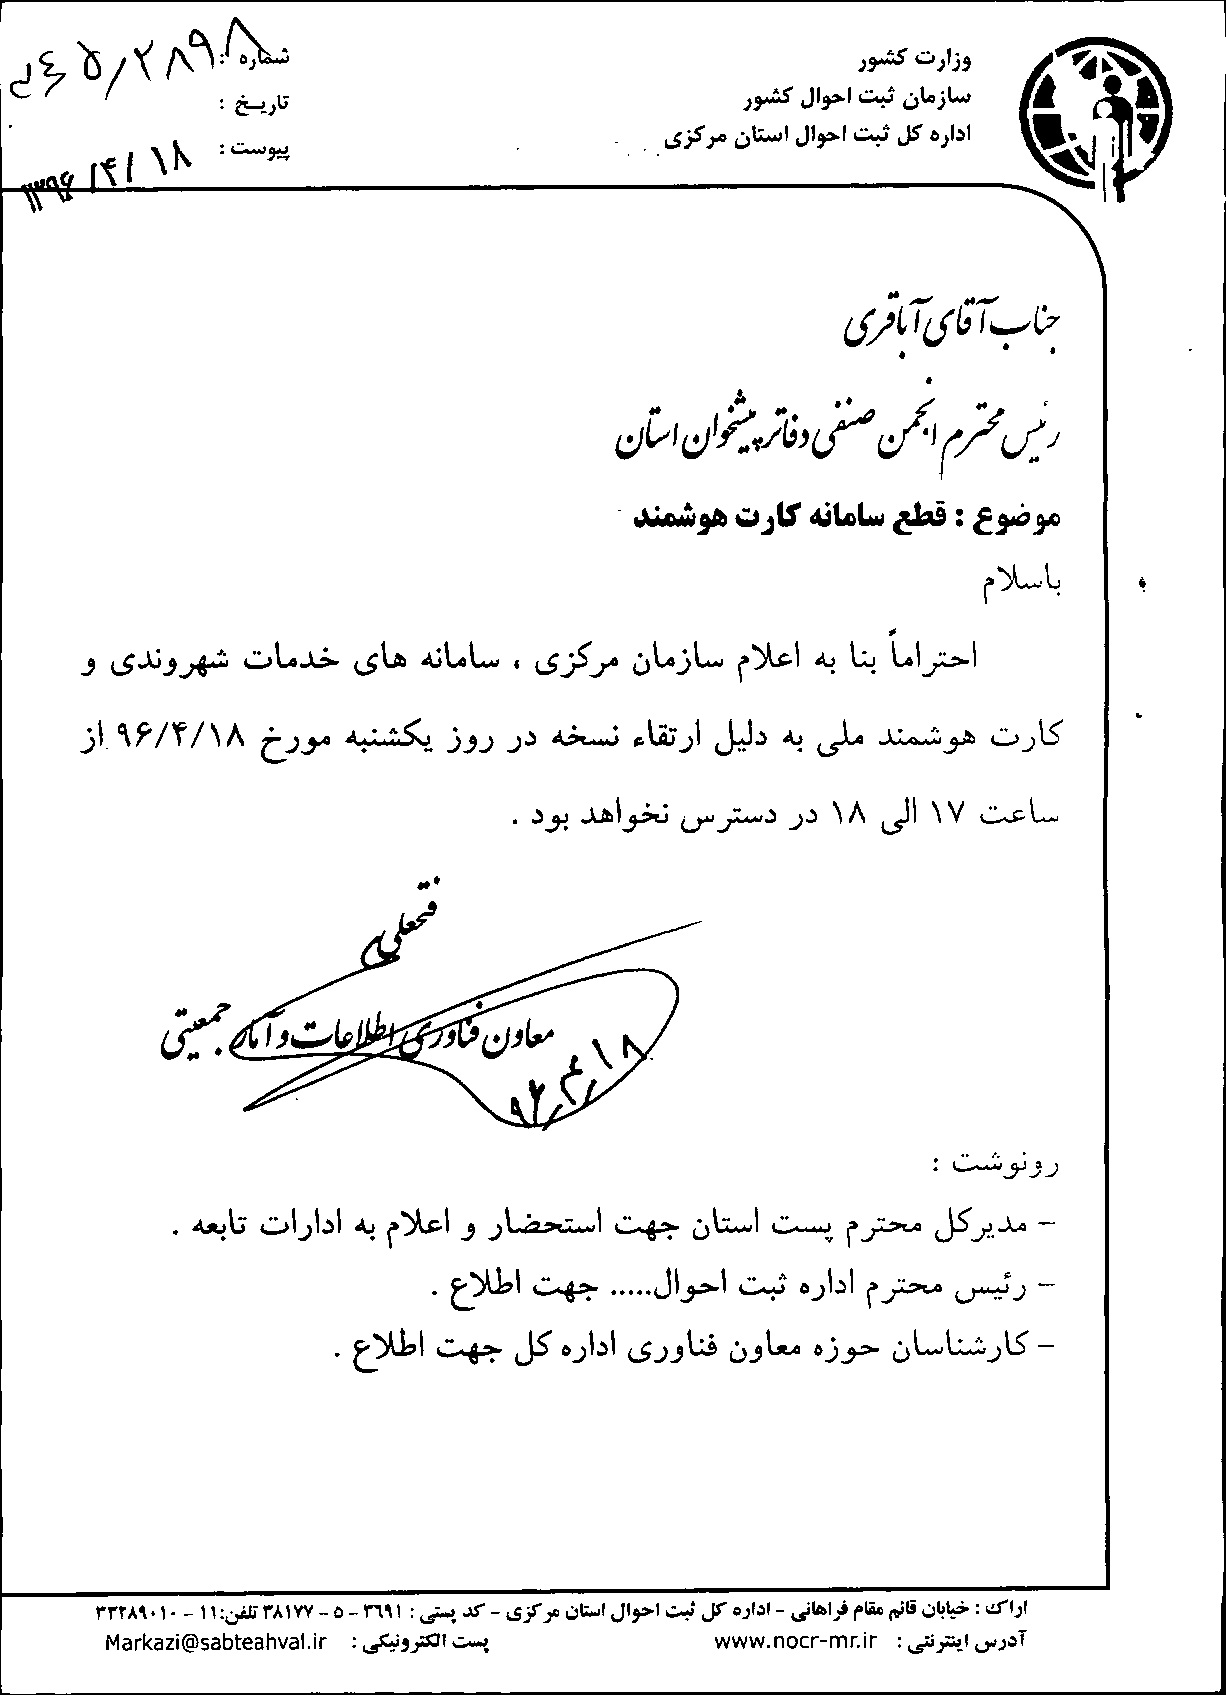 وزارت کشور
سازمان ثبت احوال کشور
اداره کل ثبت احوال استان مرکزی
شماره :
تاریخ :
پیوست :
۱۳۹۶/۴/۱۸
جناب آقای آباقری
رئیس محترم انجمن صنفی دفاتر پیشخوان استان
موضوع : قطع سامانه کارت هوشمند
باسلام
احتراماً بنا به اعلام سازمان مرکزی ، سامانه های خدمات شهروندی و
کارت هوشمند ملی به دلیل ارتقاء نسخه در روز یکشنبه مورخ ۹۶/۴/۱۸ از
ساعت ۱۷ الی ۱۸ در دسترس نخواهد بود .
فتحعلی
معاون فناوری اطلاعات و آمار جمعیتی
رونوشت :
- مدیرکل محترم پست استان جهت استحضار و اعلام به ادارات تابعه .
- رئیس محترم اداره ثبت احوال..... جهت اطلاع .
- کارشناسان حوزه معاون فناوری اداره کل جهت اطلاع .
اراک : خیابان قائم مقام فراهانی - اداره کل ثبت احوال استان مرکزی - کد پستی : ۳۶۹۱ - ۵ - ۳۸۱۷۷ تلفن:۱۱ - ۳۳۲۸۹۰۱۰
آدرس اینترنتی : www.nocr-mr.ir پست الکترونیکی : Markazi@sabteahval.ir